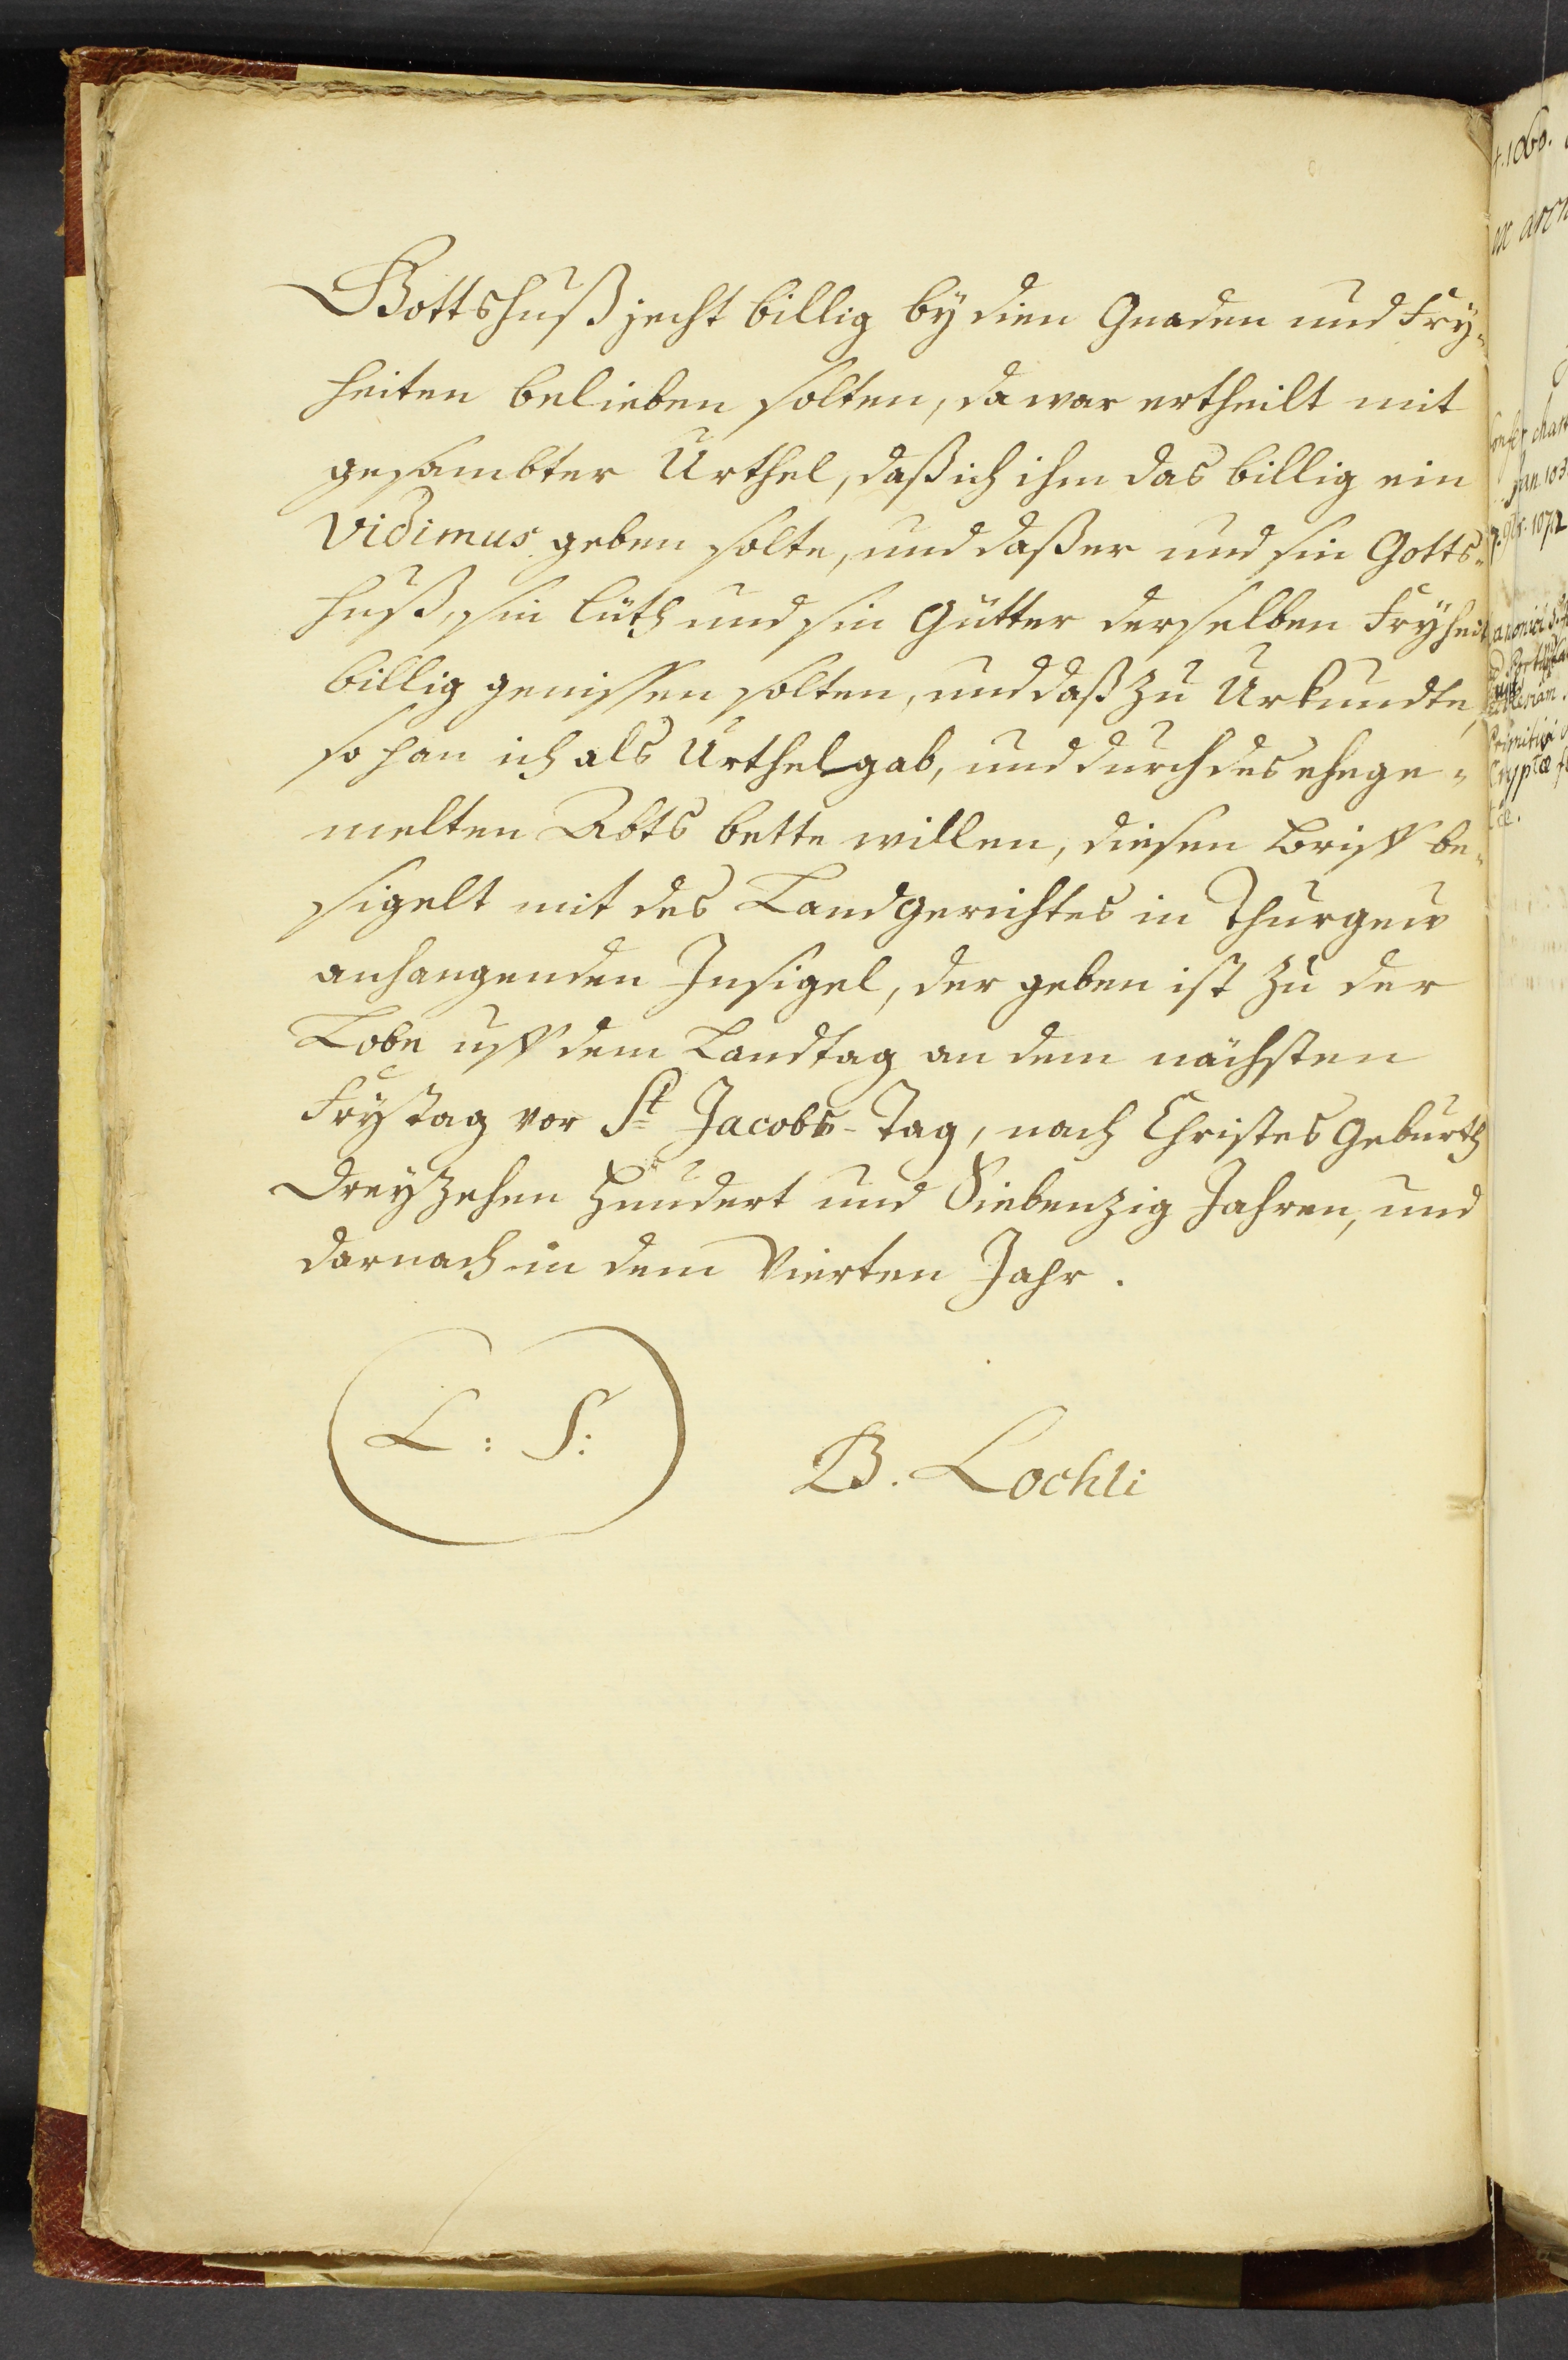 Gottshuß jecht billig by dien Gnaden und Fry¬
heiten belieben solten, da war ertheilt mit
gesambter Urthel, daß ich ihm das billig ein
Vidimus geben solte, und daß er und sin Gotts¬
huß, sin lüth und sin Gütter derselben Fryheit
billig genissen solten, und daß zu Urkundte,
so han ich als Urthel gab, und durch des ehege¬
melten Abts bette willen, diesen Brieff be¬
sigelt mit des Landgerichtes in Thurgeuw
anhangenden Insigel, der geben ist zu der
Lobe uff dem Landtag an dem nächsten
Frytag vor St Jacobs-Tag, nach Christes Geburth
Dreyzehen Hundert und Siebenzig Jahren, und
darnach in dem Vierten Jahr.
L: S:
B. Lochli